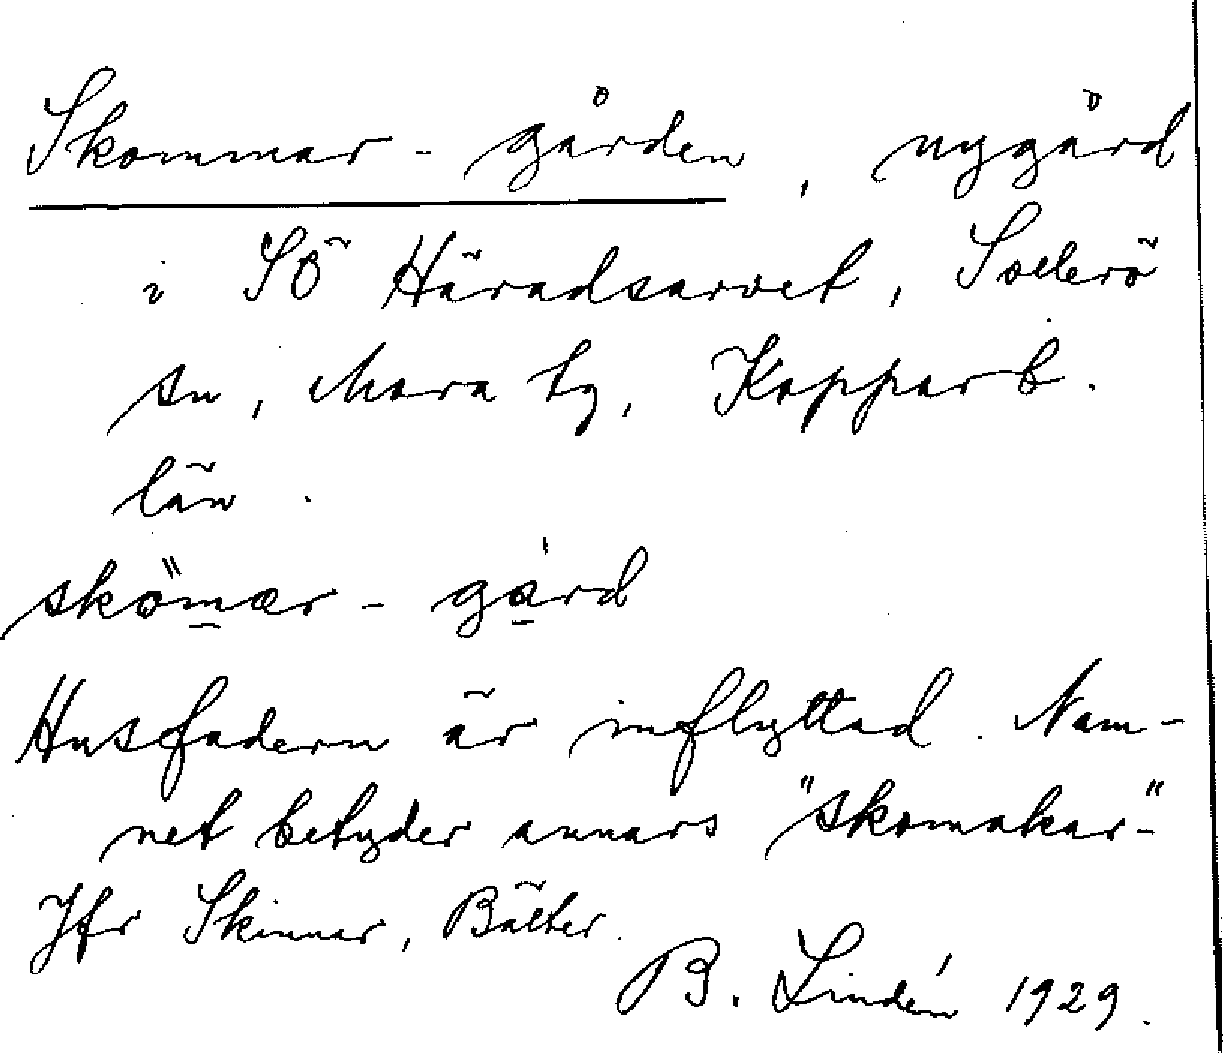 Skommar-gården, nygård
i SÖ Häradsarvet, Sollerö
sn, Mora tg, Kopparb.
län.
skö̋mær-gård
Husfadern är inflyttad. Nam-
net betyder annars "skomakar-"
Jfr Skinnar, Bälter.
B. Lindén 1929.